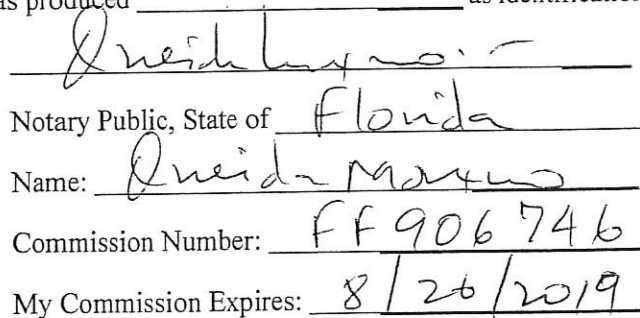 as produced ____________ as identification
Notary Public, State of Florida
Name: Oneida Moreno
Commission Number: FF 906746
My Commission Expires: 8/26/2019